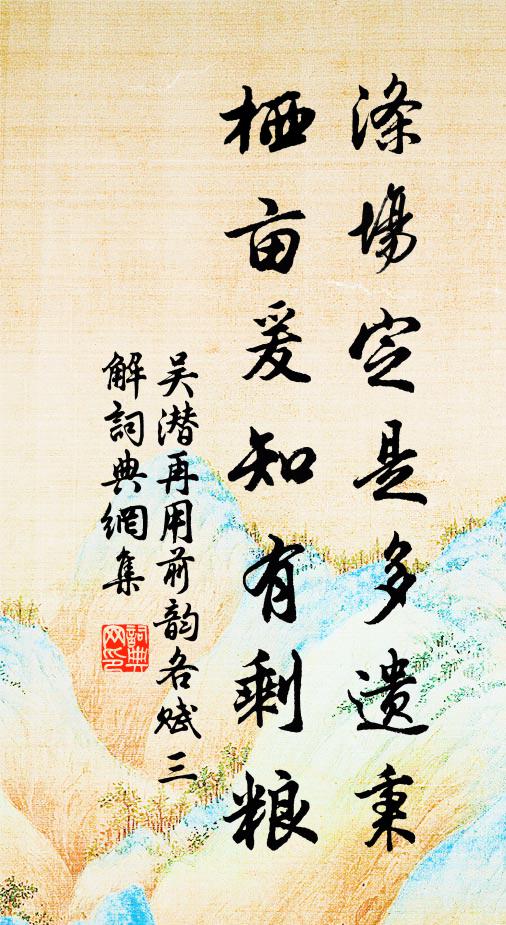 滌場定是多遗秉
栖亩爰知有剩粮
吴潜再用前韵各赋三
解詞典網集
詞典網印